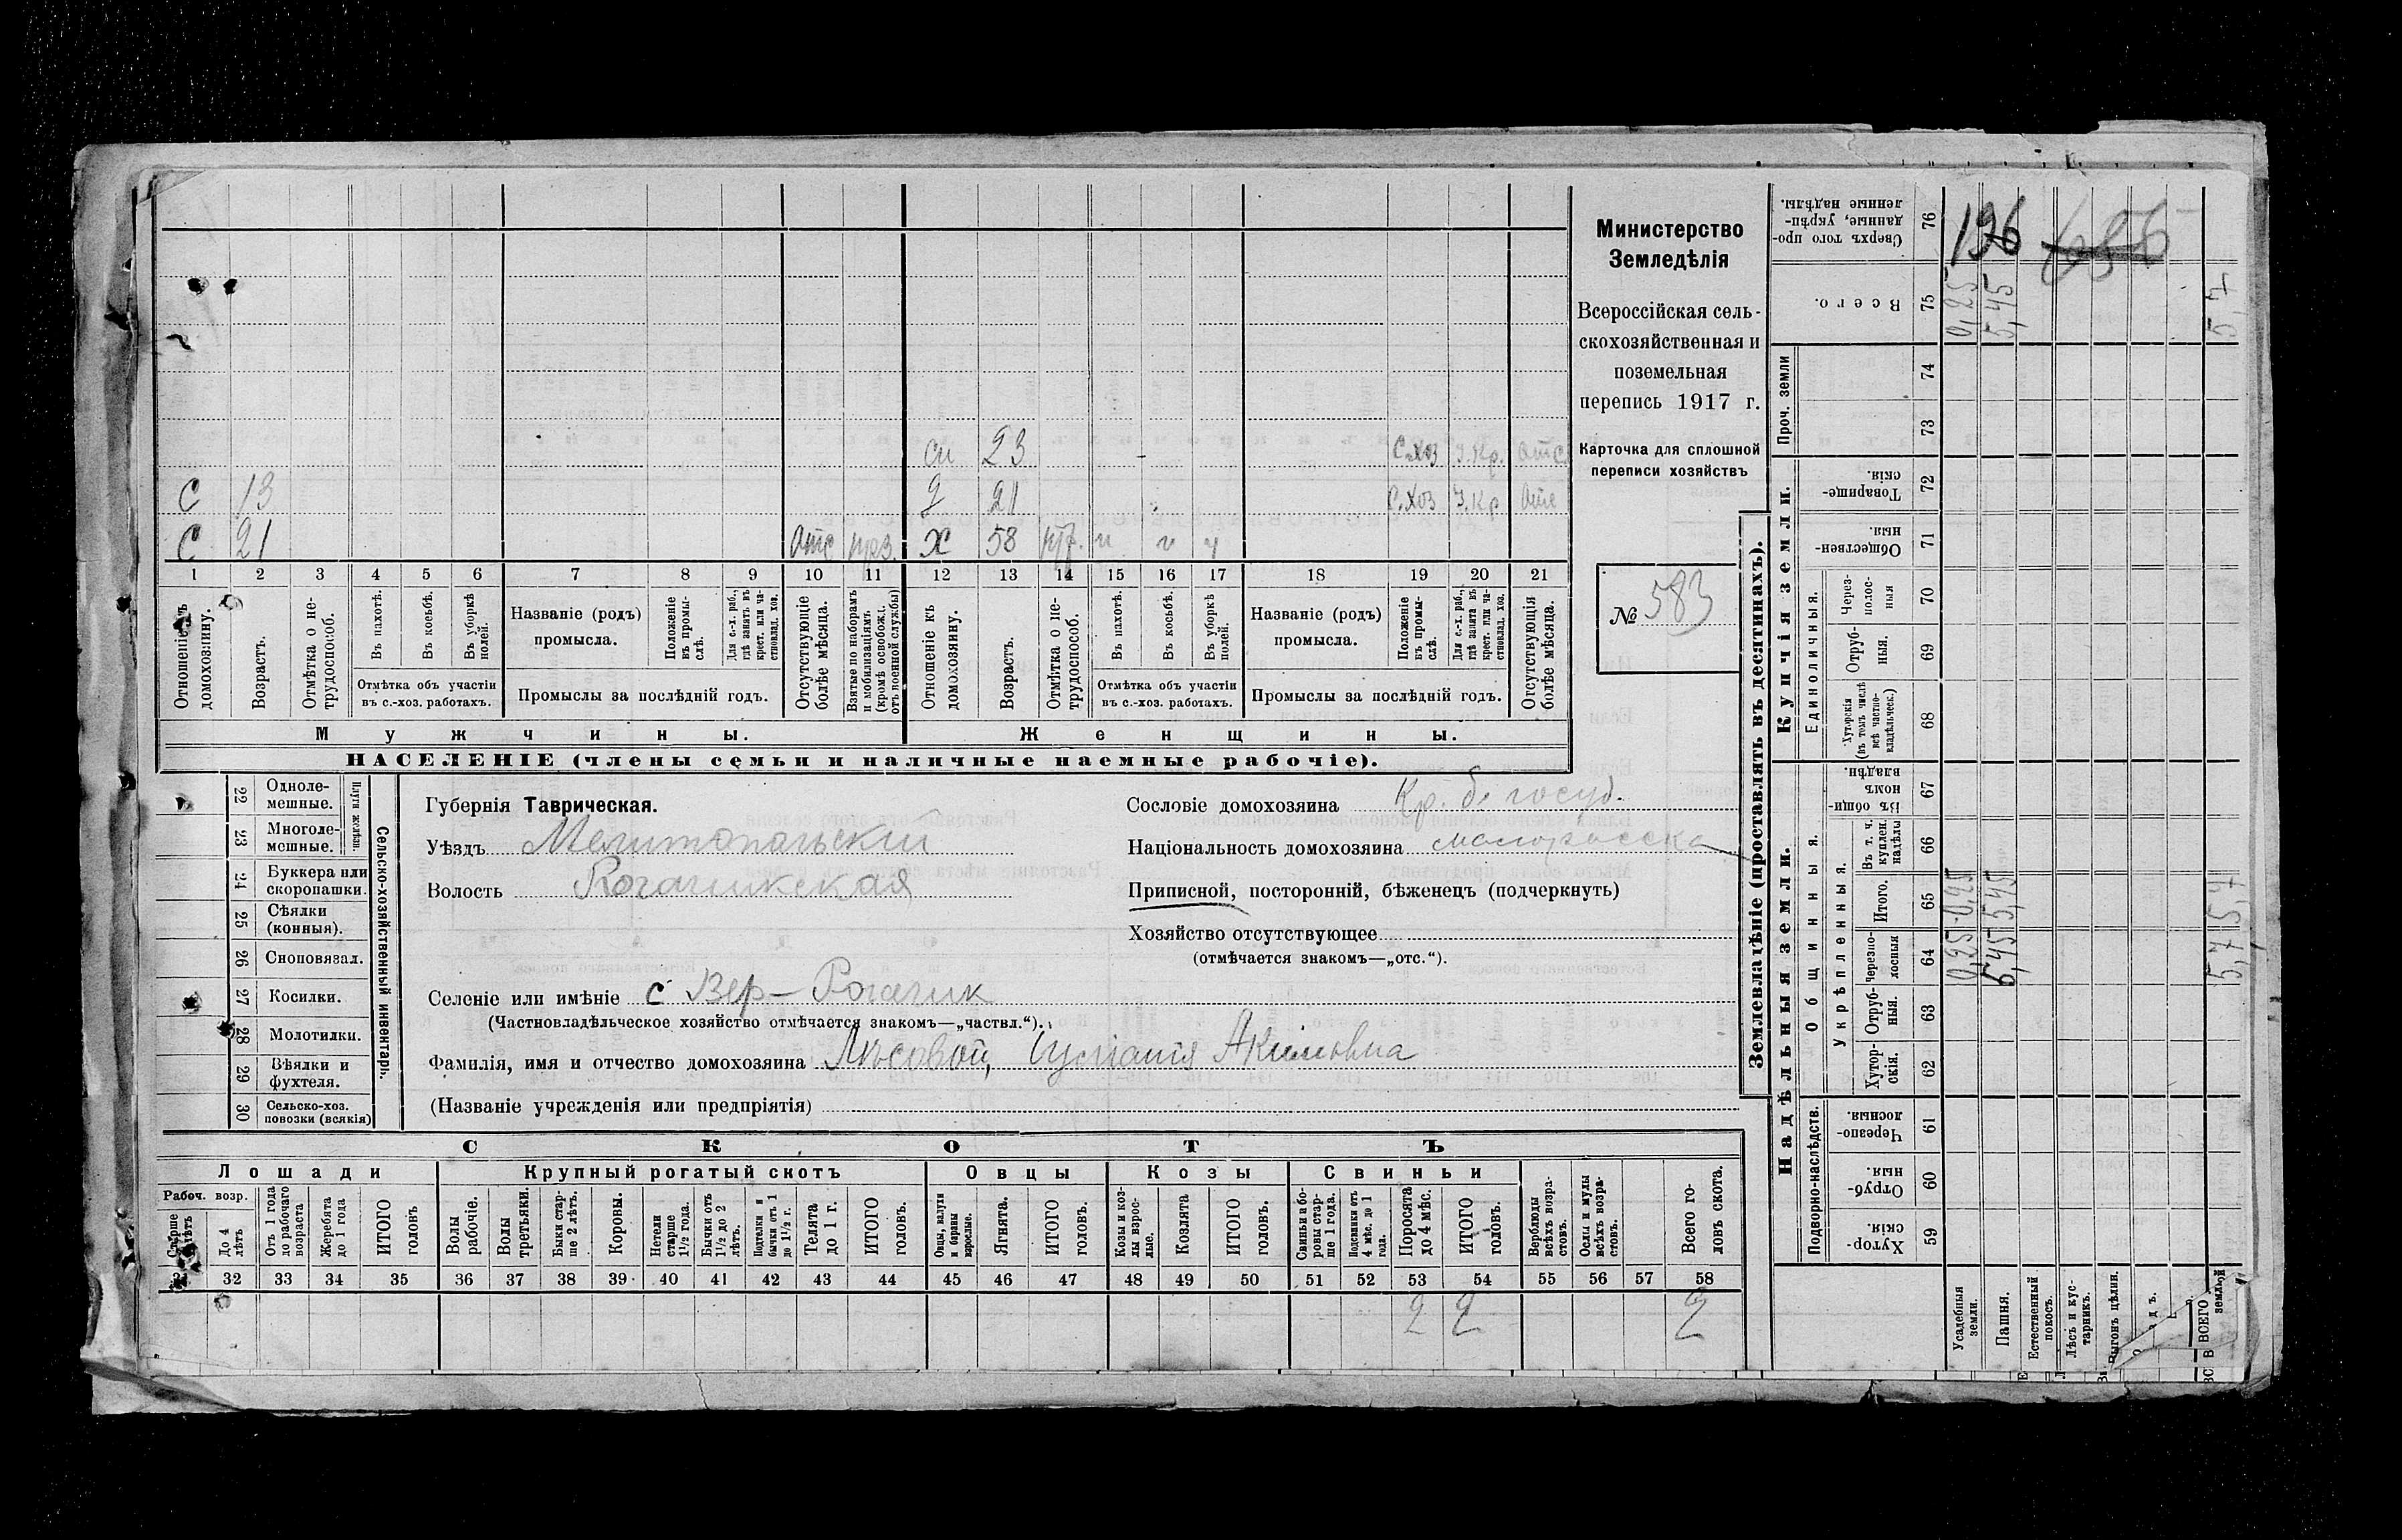 Министерство
Земледѣлія
Всероссійская сель-
скохозяйственная и
поземельная
перепись 1917 г.
Карточка для сплошной
переписи хозяйствъ
№ 583
си 23 С.хоз У.Кр. отс
С 13 д 21 С.хоз У.Кр отс
С 21 отс х 58 и и и
1 2 3 4 5 6 7 8 9 10 11 12 13 14 15 16 17 18 19 20 21
Отношеніе къ домохозяину.
Возрастъ.
Отмѣтка о не-
трудоспособ.
Въ пахотѣ.
Въ косьбѣ.
Въ уборкѣ
полей.
Отмѣтка объ участіи
въ с.-хоз. работахъ.
Названіе (родъ)
промысла.
Положеніе
въ промы-
слѣ.
Для с.-х. раб.,
гдѣ занятъ въ
крест. или ча-
стновлад. хоз.
Промыслы за послѣдній годъ.
Отсутствующіе
болѣе мѣсяца.
Взятые по наборамъ
и мобилизаціямъ
(кромѣ освобожд.
отъ военной службы)
Отношеніе къ
домохозяину.
Возрастъ.
Отмѣтка о не-
трудоспособ.
Въ пахотѣ.
Въ косьбѣ.
Въ уборкѣ
полей.
Отмѣтка объ участіи
въ с.-хоз. работахъ.
Названіе (родъ)
промысла.
Положеніе
въ промы-
слѣ.
Для с.-х. раб.,
гдѣ занятъ въ
крест. или ча-
стновлад. хоз.
Промыслы за послѣдній годъ.
Отсутствующія
болѣе мѣсяца.
Мужчины.
Женщины.
НАСЕЛЕНІЕ (члены семьи и наличные наемные рабочіе).
22 Одноле-
мешные.
23 Многоле-
мешные.
Плуги желѣзн.
24 Буккера или
скоропашки.
25 Сѣялки
(конныя).
26 Сноповязал.
27 Косилки.
28 Молотилки.
29 Вѣялки и
фухтеля.
30 Сельско-хоз.
повозки (всякія)
Сельско-хозяйственный инвентарь.
Губернія Таврическая.
Уѣздъ Мелитопольскій
Волость Рогачикская
Сословіе домохозяина Кр. б. госуд.
Національность домохозяина малоросска
Приписной, посторонній, бѣженецъ (подчеркнуть)
Хозяйство отсутствующее
(отмѣчается знакомъ—„отс.“).
Селеніе или имѣніе с Вер–Рогачик
(Частновладѣльческое хозяйство отмѣчается знакомъ—„частвл.“).
Фамилія, имя и отчество домохозяина Лѣсовой, Акимовна
(Названіе учрежденія или предпріятія)
СКОТЪ
Лошади
Крупный рогатый скотъ
Овцы
Козы
Свиньи
Рабоч. возр.
До 4
лѣтъ
Отъ 1 года
до рабочаго
возраста
Жеребята
до 1 года
ИТОГО
головъ
Волы
рабочіе.
Волы
третьяки.
Быки стар-
ше 2 лѣтъ.
Коровы.
Нетели
старше
1½ года.
Бычки отъ
1½ до 2
лѣтъ.
Подтелки и
бычки отъ 1
до 1½ г.
Телята
до 1 г.
ИТОГО
головъ.
Овцы, валухи
и бараны
взрослые.
Ягнята.
ИТОГО
головъ.
Козы и коз-
лы взрос-
лые.
Козлята
ИТОГО
головъ.
Свиньи и бо-
ровы стар-
ше 1 года.
Подсвинки отъ
4 мѣс. до 1
года.
Поросята
до 4 мѣс.
ИТОГО
головъ.
Верблюды
всѣхъ возра-
стовъ.
Ослы и мулы
всѣхъ возра-
стовъ.
Всего го-
ловъ скота.
32 33 34 35 36 37 38 39 40 41 42 43 44 45 46 47 48 49 50 51 52 53 54 55 56 57 58
2 2 2
Землевладѣніе (проставлять въ десятинахъ).
Купчія земли.
Надѣльныя земли.
Сверхъ того про-
данные, укрѣп-
ленные надѣлы.
76
196 686
Всего.
75
0,25 5,45 5,7
Проч. земли
74
73
Товарище-
скія.
72
Обществен-
ныя.
71
Единоличныя.
Через-
полос-
ныя
70
Отруб-
ныя.
69
Хуторскія
(въ томъ числѣ
всѣ частно-
владѣльческ.)
68
Общинныя.
Въ общин-
номъ
владѣн.
67
Укрѣпленныя.
Въ т. ч.
куплен.
надѣлы
66
Итого.
65
0,25 5,45 5,7
Черезпо-
лосныя
64
0,25 5,45 5,7
Отруб-
ныя.
63
Хутор-
скія.
62
Подворно-наслѣдств.
Черезпо-
лосныя.
61
Отруб-
ныя.
60
Хутор-
скія.
59
Усадебныя
земли.
Пашня.
Естественный
покосъ.
Лѣсъ и кус-
тарникъ.
Выгонъ цѣлин.
ВСЕГО
землей